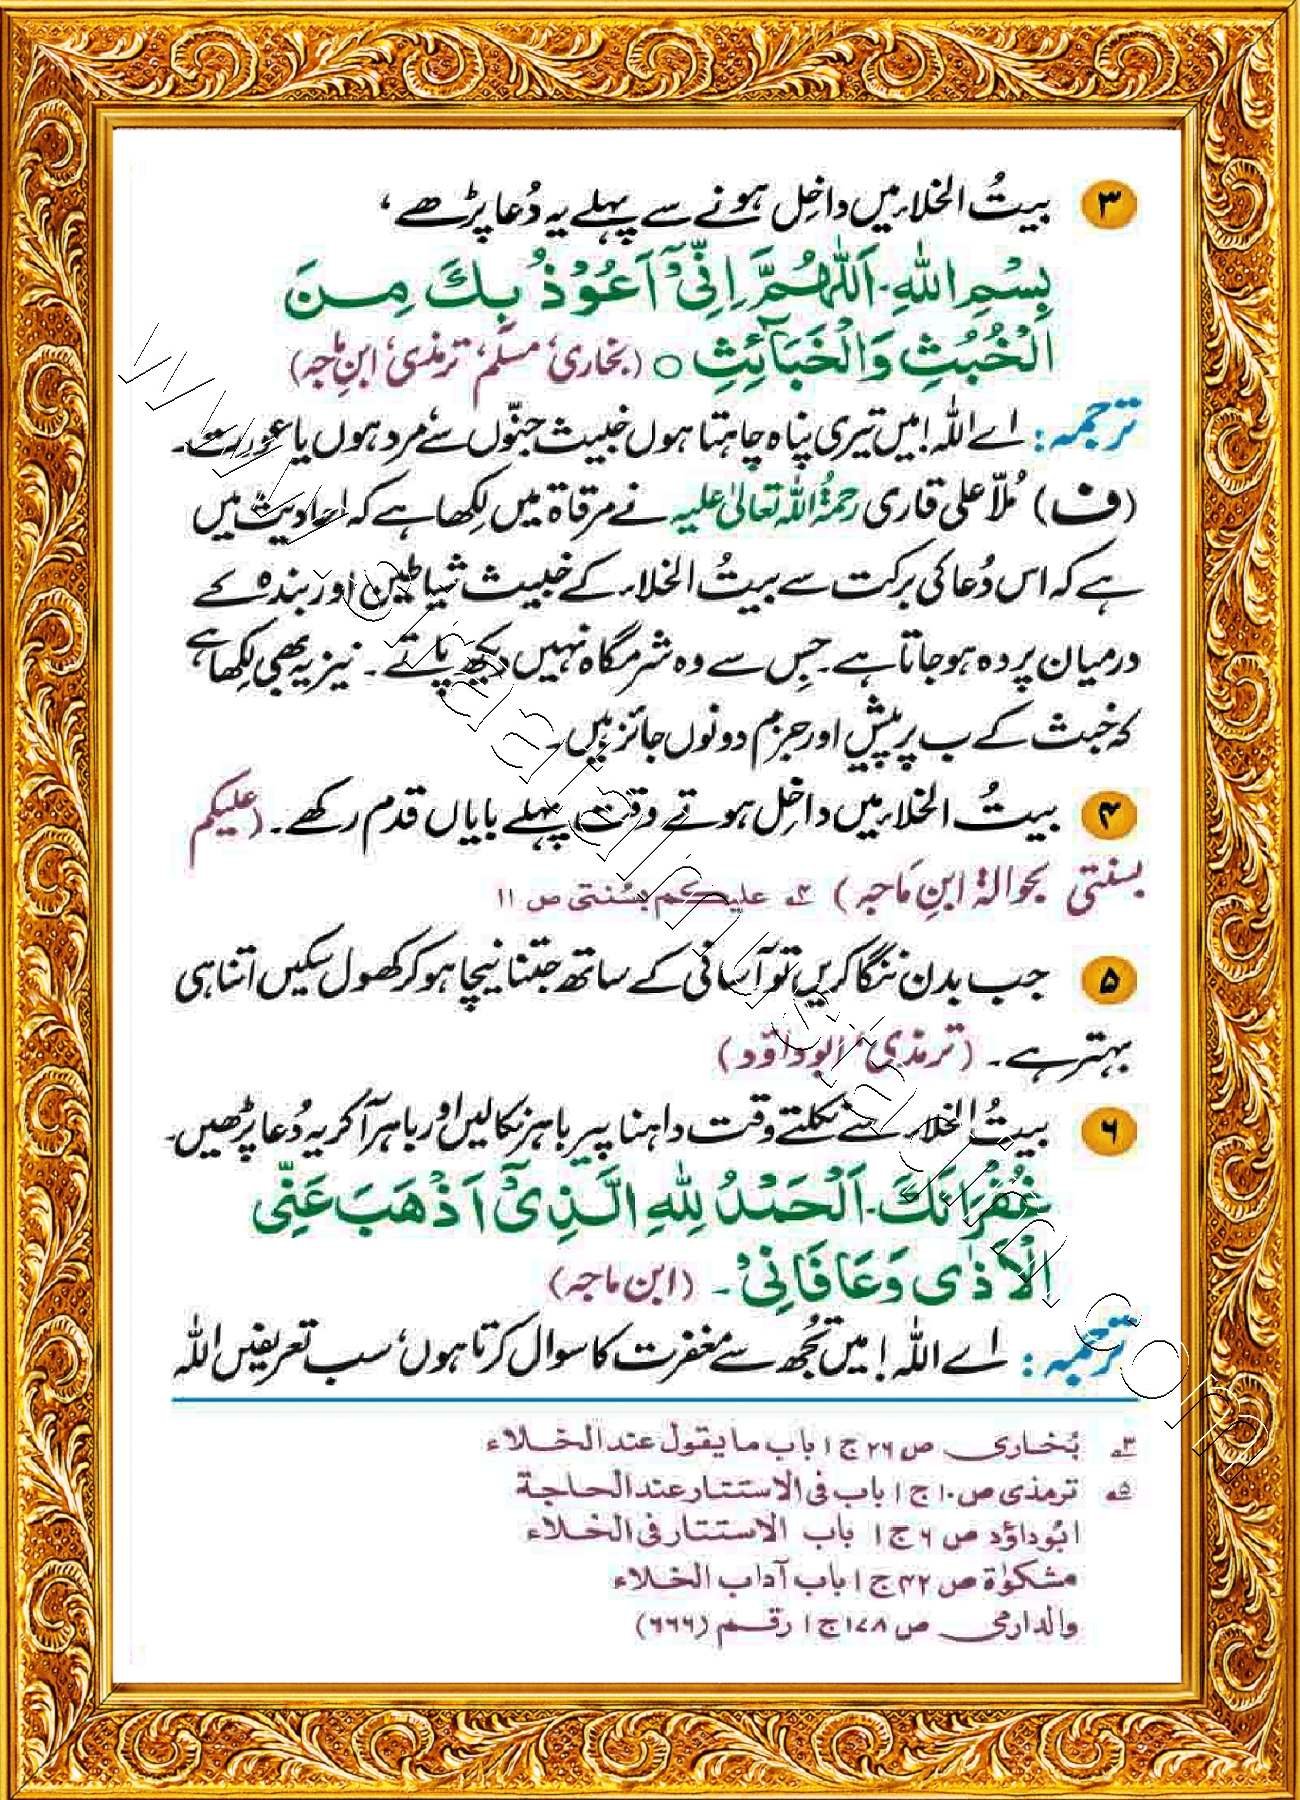 ۳ بیتُ الخلاء میں داخِل ہونے سے پہلے یہ دُعا پڑھے،
بِسْمِ اللهِ۔ اَللّٰهُمَّ اِنِّىْۤ اَعُوْذُ بِكَ مِنَ
الْخُبُثِ وَالْخَبَآئِثِ ○ (بخاری، مسلم، ترمذی، ابنِ ماجہ)
ترجمہ: اے اللہ! میں تیری پناہ چاہتا ہوں خبیث جنّوں سے مرد ہوں یا عورت۔
(ف) مُلّا علی قاری رحمۃُ اللہ تعالیٰ علیہ نے مرقاۃ میں لِکھا ہے کہ احادیث میں
ہے کہ اس دُعا کی برکت سے بیتُ الخلاء کے خبیث شیاطین اور بندہ کے
درمیان پردہ ہو جاتا ہے۔ جِس سے وہ شرمگاہ نہیں دیکھ پاتے۔ نیز یہ بھی لِکھا ہے
کہ خبث کے ب پر پیش اور جزم دونوں جائز ہیں۔
۴ بیتُ الخلاء میں داخِل ہوتے وقت پہلے بایاں قدم رکھے۔ (علیکم
بسنتی بحوالۂ ابنِ ماجہ) ۴ علیکم بسُنتی ص ۱۱
۵ جب بدن ننگا کریں تو آسانی کے ساتھ جتنا نیچا ہو کر کھول سکیں اتنا ہی
بہتر ہے۔ (ترمذی، ابوداؤد)
۶ بیتُ الخلاء سے نکلتے وقت داہنا پیر باہر نکالیں اور باہر آ کر یہ دُعا پڑھیں۔
غُفْرَانَكَ۔ اَلْحَمْدُ لِلّٰهِ الَّذِىْۤ اَذْهَبَ عَنِّى
الْاَذٰى وَعَافَانِىْ۔ (ابن ماجہ)
ترجمہ: اے اللہ! میں تجُھ سے مغفرت کا سوال کرتا ہوں، سب تعریفیں اللہ
۳ بُخاری ص ۲۶ ج ۱ باب ما یقول عند الخلاء
۵ ترمذی ص ۱۰ ج ۱ باب فی الاستتار عند الحاجة
ابُوداؤد ص ۶ ج ۱ باب الاستتار فی الخلاء
مشکوٰة ص ۴۲ ج ۱ باب آداب الخلاء
والدارمی ص ۱۷۸ ج ۱ رقم (۶۶۶)